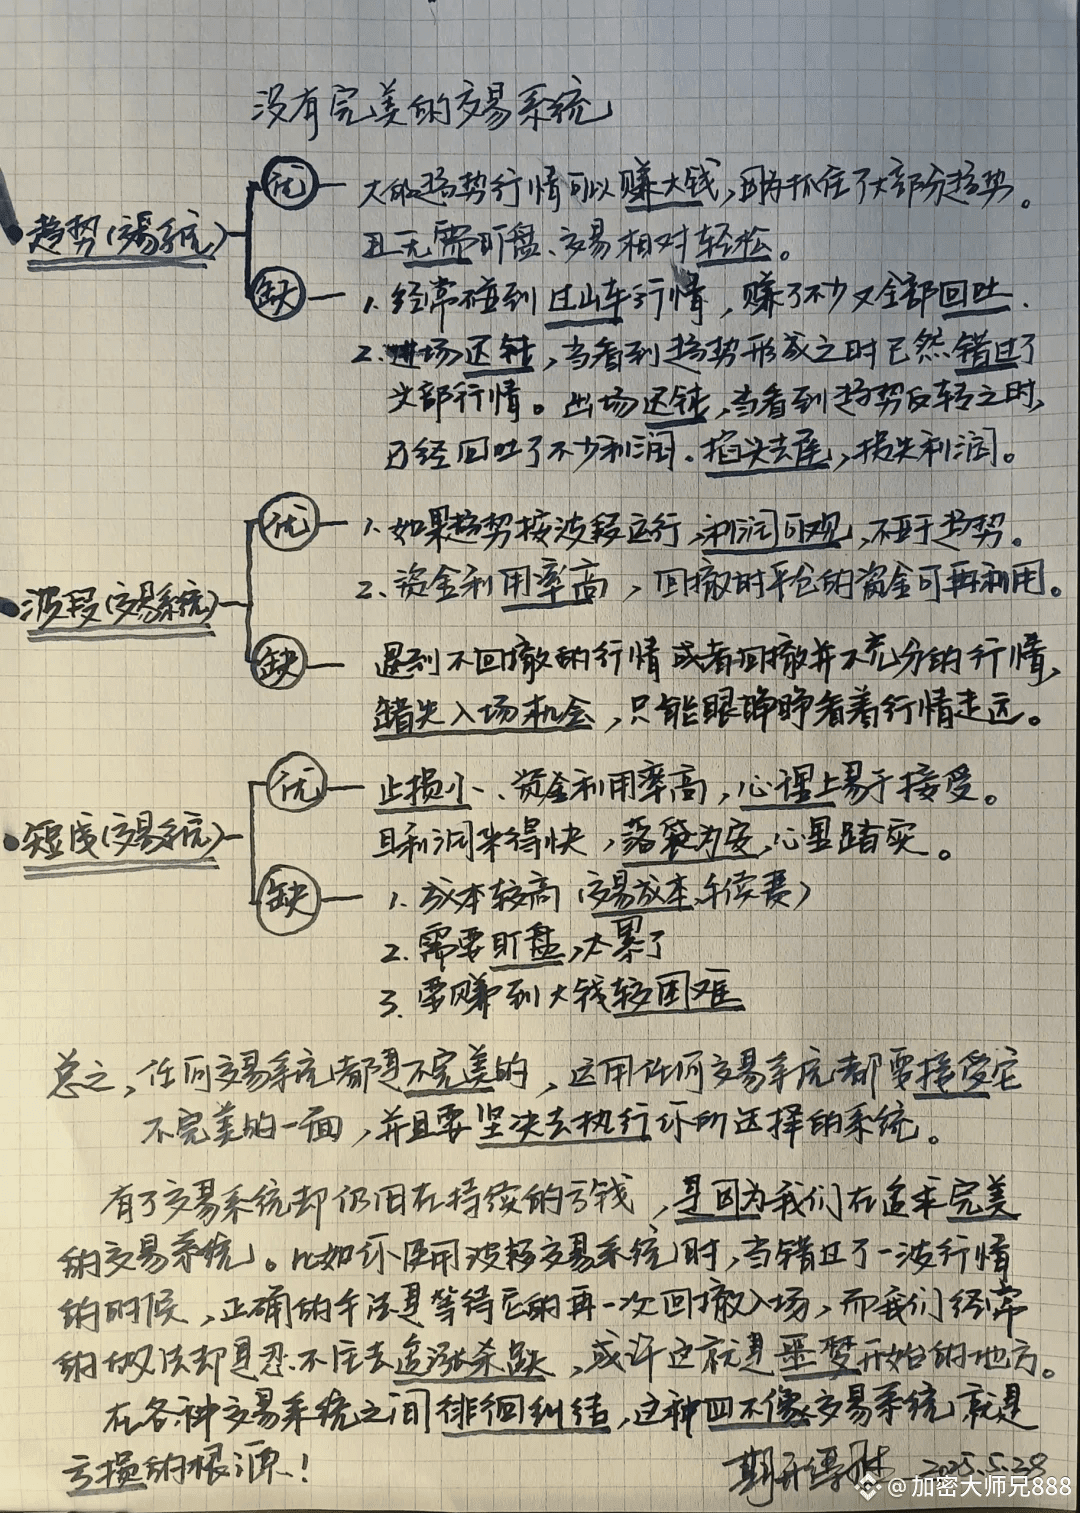 没有完美的交易系统
优 — 大的趋势行情可以赚大钱,因为抓住了大部分趋势。
趋势(交易系统)
且无需盯盘、交易相对轻松。
缺 — 1. 经常碰到过山车行情,赚了不少又全部回吐.
2. 进场迟钝,当看到趋势形成之时已然错过了
头部行情。出场迟钝,当看到趋势反转之时,
已经回吐了不少利润.掐头去尾,损失利润。
优 — 1. 如果趋势按波段运行,利润可观,不亚于趋势。
2. 资金利用率高,回撤时平仓的资金可再利用。
波段(交易系统)
缺 — 遇到不回撤的行情或者回撤并不充分的行情,
错失入场机会,只能眼睁睁看着行情走远。
优 — 止损小、资金利用率高,心理上易于接受。
短线(交易系统)
且利润来得快,落袋为安,心里踏实。
缺 — 1. 成本较高(交易成本,手续费)
2. 需要盯盘,太累了
3. 要赚到大钱较困难
总之,任何交易系统都是不完美的,运用任何交易系统都要接受它
不完美的一面,并且要坚决去执行你所选择的系统。
有了交易系统却仍旧在持续的亏钱,是因为我们在追求完美
的交易系统。比如你使用波段交易系统时,当错过了一波行情
的时候,正确的手法是等待它的再一次回撤入场,而我们经常
的做法却是忍不住去追涨杀跌,或许这就是噩梦开始的地方。
在各种交易系统之间徘徊纠结,这种四不像交易系统就是
亏损的根源!
2025.5.28
@加密大师兄888